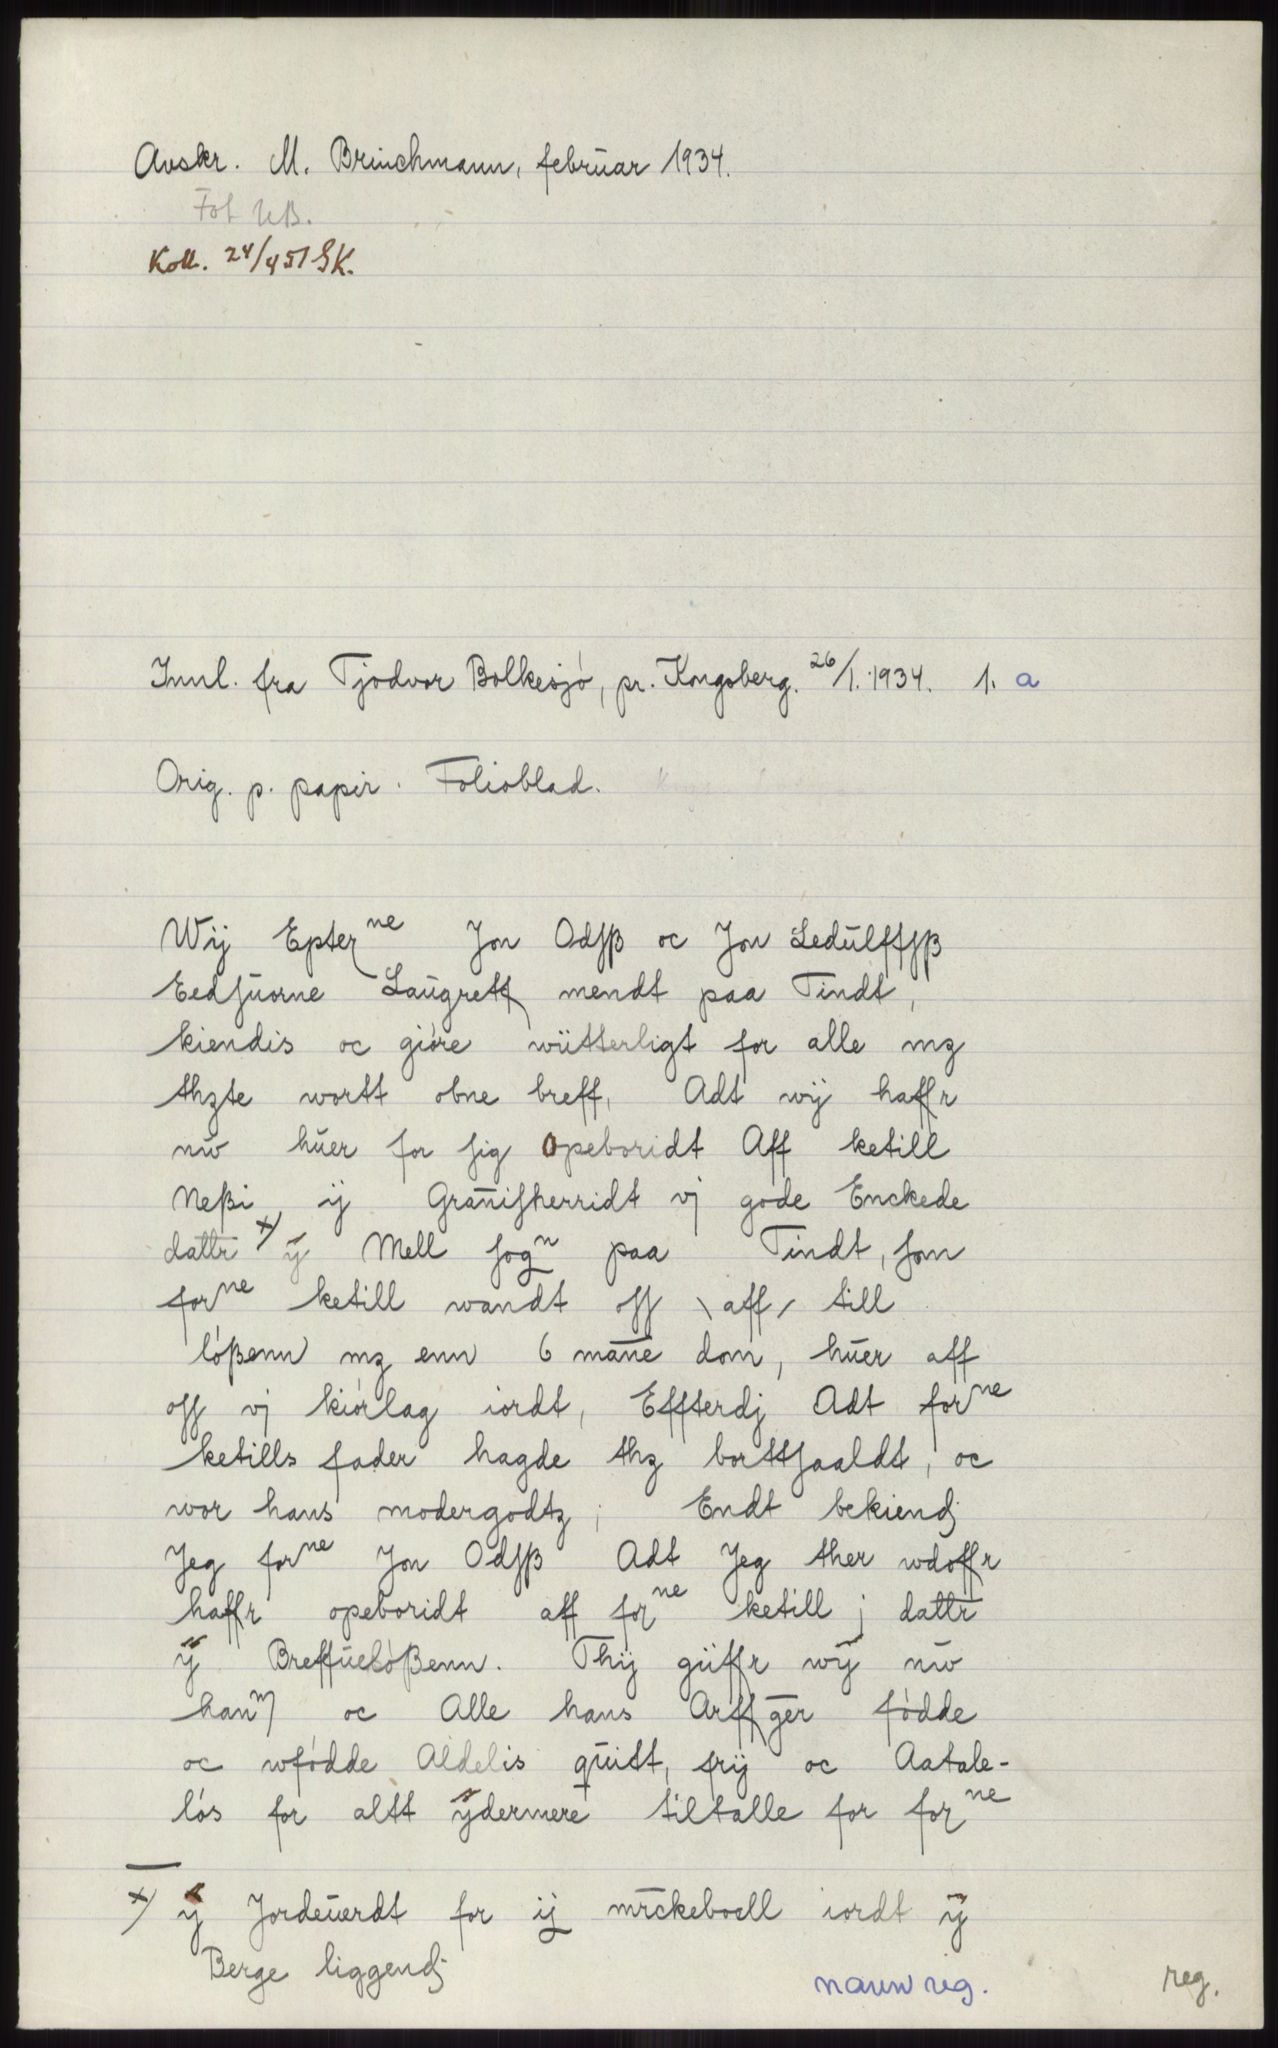 Avskr. M. Brinchmann, februar 1934.
Fot UB.
Koll. 24/4 51 SK.
Innl. fra Tjodvor Bolkesjó, pr. Kongsberg. 26/1. 1934. 1. a
Orig. p. papir. Folioblad.
Wij Epterne Jon Odsß oc Jon Ledulffsß
Eedsuorne Laugrett mendt paa Tindt,
kiendis oc gióre wütterligt for alle mz
thzte wortt obne breff, Adt wij haffr
nw huer for sig Opeboridt Aff ketill
Neßi ij Granisherridt vj gode Enckede
dattr x) ÿ Mell sogn paa Tindt, som
forne ketill wandt oss \ aff / till
lóßenn mz enn 6 mane dom, huer aff
oss vj kiórlag iordt, Effterdj Adt forne
ketills fader hagde thz borttsaaldt, oc
wor hans modergodtz; Endt bekiendj
Jeg forne Jon Odsß Adt Jeg ther wdoffr
haffr opeboridt aff forne ketill j dattr
ÿ Breffuelóßenn. Thij güffr wÿ nw
hanm oc Alle hans Arffger fódde
oc wfódde Aldelis quitt, frij oc Aatale-
lós for altt ÿdermere tiltalle for forne
x) ÿ Jordeuerdt for ij mrckeboell iordt ÿ
Berge liggendj
navnreg.
reg.